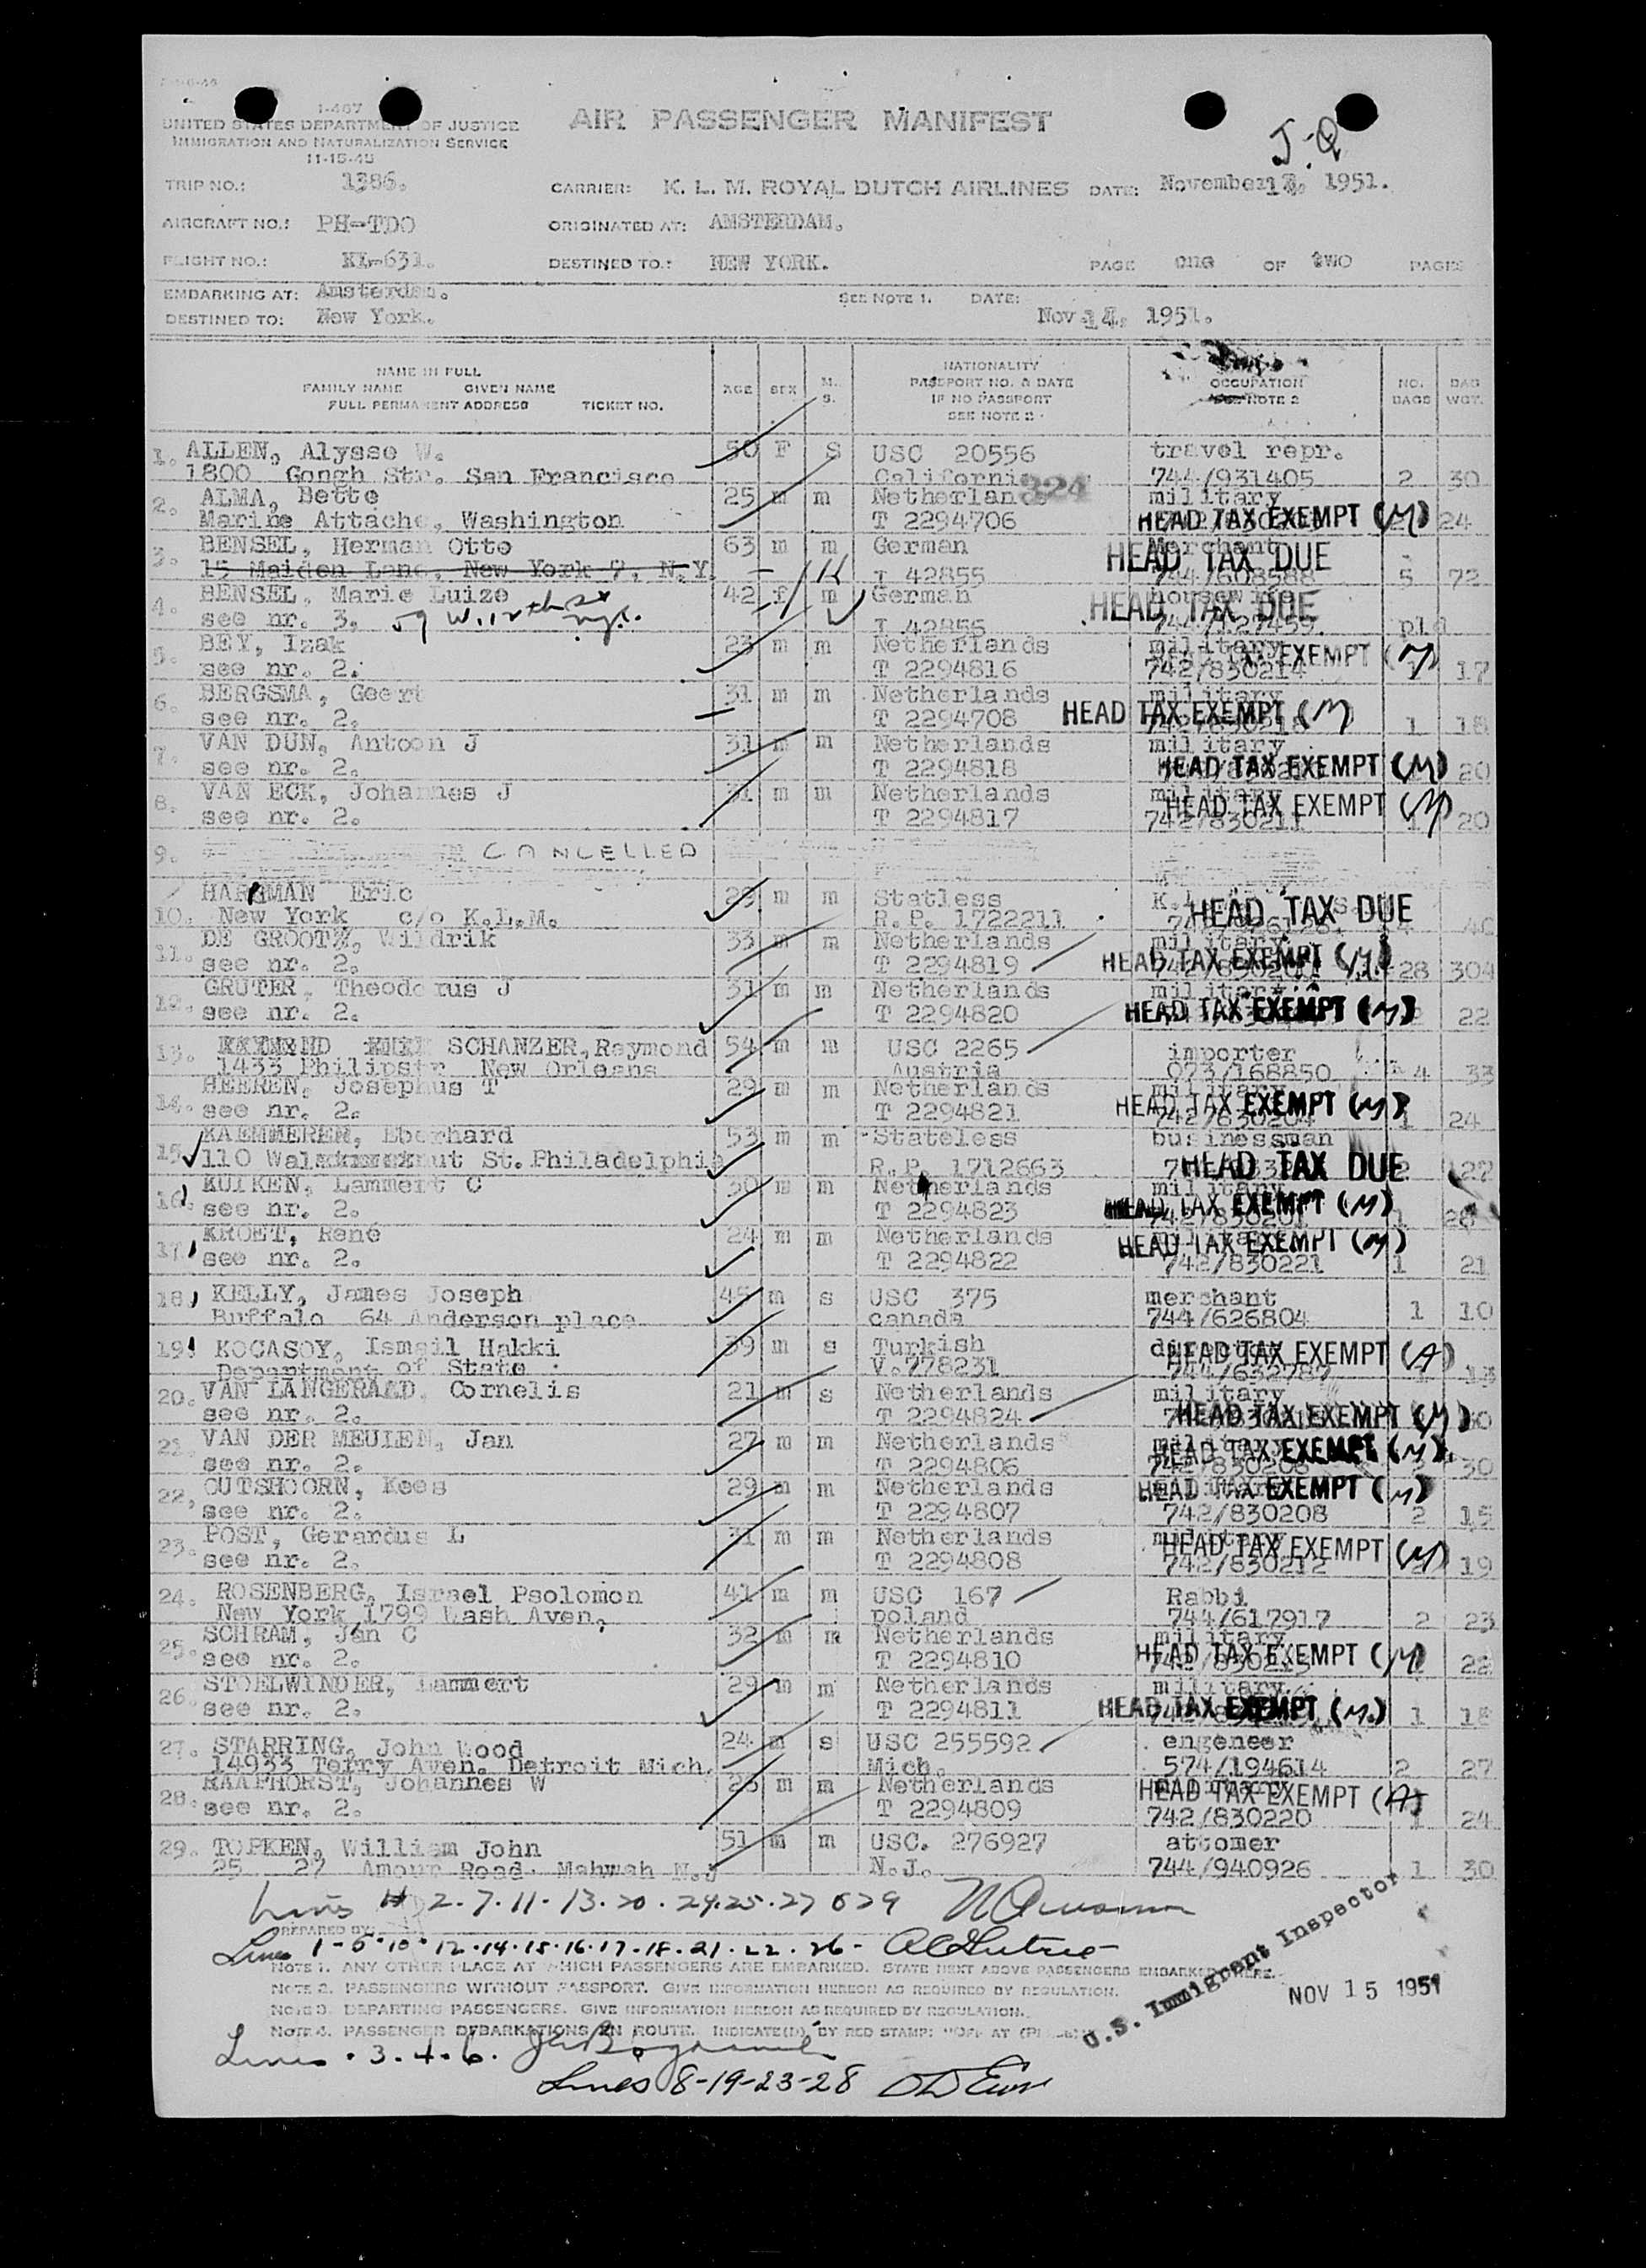 I-467
UNITED STATES DEPARTMENT OF JUSTICE
IMMIGRATION AND NATURALIZATION SERVICE
11-15-45
AIR PASSENGER MANIFEST
J-Q
TRIP NO.: 1386. CARRIER: K. L. M. ROYAL DUTCH AIRLINES DATE: November 1951.
AIRCRAFT NO.: PH-TDO ORIGINATED AT: AMSTERDAM.
FLIGHT NO.: KL-631. DESTINED TO.: NEW YORK. PAGE one OF two PAGES
EMBARKING AT: Amsterdam. SEE NOTE 1. DATE:
DESTINED TO: New York. Nov. 14, 1951.
NAME IN FULL
FAMILY NAME GIVEN NAME
FULL PERMANENT ADDRESS TICKET NO.
AGE SEX M. S.
NATIONALITY
PASSPORT NO. & DATE
IF NO PASSPORT
SEE NOTE 2
OCCUPATION
SEE NOTE 2
NO. BAGS BAG WGT.
1. ALLEN, Alysse W. 50 F S USC 20556 travel repr.
1800 Gongh Str. San Francisco California 744/931405 2 30
324
2. ALMA, Bette 25 m m Netherlands military
Marine Attache, Washington T 2294706 HEAD TAX EXEMPT (M) 24
3. BENSEL, Herman Otto 63 m m German Merchant HEAD TAX DUE
15 Maiden Lane, New York 7, N.Y. T 42855 744/608588 5 72
4. BENSEL, Marie Luize 42 f m German housewife HEAD TAX DUE
see nr. 3. 59 W. 12th St N.Y.C. T 42855 pld
5. BEY, Izak 23 m m Netherlands military TAX EXEMPT (M)
see nr. 2. T 2294816 742/830214 17
6. BERGSMA, Geert 31 m m Netherlands military
see nr. 2. T 2294708 HEAD TAX EXEMPT (M) 1 18
7. VAN DUN, Antoon J 31 m m Netherlands military
see nr. 2. T 2294818 HEAD TAX EXEMPT (M) 20
8. VAN ECK, Johannes J 31 m m Netherlands military HEAD TAX EXEMPT (M)
see nr. 2. T 2294817 742/830211 1 20
9. CANCELLED
HARTMAN Eric 29 m m Statless HEAD TAX DUE
10. New York c/o K.L.M. R.P. 1722211 40
11. DE GROOT, Wildrik 33 m m Netherlands military
see nr. 2. T 2294819 HEAD TAX EXEMPT (M) 28 304
12. GRUTER, Theodorus J 31 m m Netherlands military
see nr. 2. T 2294820 HEAD TAX EXEMPT (M) 22
13. SCHANZER, Raymond 54 m m USC 2265 importer
1433 Philipstr New Orleans Austria 073/168850 4 33
14. HEEREN, Josephus T 29 m m Netherlands military
see nr. 2. T 2294821 HEAD TAX EXEMPT (M) 742/830204 1 24
15. KAEMMERER, Eberhard 53 m m Stateless businessman
110 Walnut St. Philadelphia R.P. 1712663 HEAD TAX DUE 2 27
16. KUIKEN, Lammert C 30 m m Netherlands military
see nr. 2. T 2294823 HEAD TAX EXEMPT (M) 742/830201 1
17. KROET, René 24 m m Netherlands HEAD TAX EXEMPT (M)
see nr. 2. T 2294822 742/830221 1 21
18. KELLY, James Joseph 45 m s USC 375 merchant
Buffalo 64 Anderson place canada 744/626804 1 10
19. KOCASOY, Ismail Hakki 39 m s Turkish HEAD TAX EXEMPT (A)
Department of State V.778231 744/632787 13
20. VAN LANGERAAD, Cornelis 21 m s Netherlands military
see nr. 2. T 2294824 HEAD TAX EXEMPT (M)
21. VAN DER MEULEN, Jan 27 m m Netherlands military HEAD TAX EXEMPT (M)
see nr. 2. T 2294806 742/830206 30
22. OUTSHOORN, Kees 29 m m Netherlands HEAD TAX EXEMPT (M)
see nr. 2. T 2294807 742/830208 2 15
23. POST, Gerardus L 31 m m Netherlands military HEAD TAX EXEMPT (M)
see nr. 2. T 2294808 742/830212 19
24. ROSENBERG, Israel Psolomon 41 m m USC 167 Rabbi
New York 1799 Wash Aven, poland 744/617917 2 23
25. SCHRAM, Jan C 32 m m Netherlands military
see nr. 2. T 2294810 HEAD TAX EXEMPT (M) 22
26. STOELWINDER, Lammert 29 m m Netherlands military
see nr. 2. T 2294811 HEAD TAX EXEMPT (M.) 1 18
27. STARRING, John Wood 24 m s USC 255592 engeneer
14933 Terry Aven. Detroit Mich. Mich. 574/194614 2 27
28. RAAPHORST, Johannes W m m Netherlands HEAD TAX EXEMPT
see nr. 2. T 2294809 742/830220 1 24
29. TOPKEN, William John 51 m m USC. 276927 attorner
25 27 Amour Road Mahwah N.J N.J. 744/940926 1 30
Lines 2-7-11-13-20-24-25-27 & 29
PREPARED BY:
Lines 1-5-10-12-14-15-16-17-18-21-22-26-
NOTE 1. ANY OTHER PLACE AT WHICH PASSENGERS ARE EMBARKED. STATE NEXT ABOVE PASSENGERS EMBARKED THERE.
NOTE 2. PASSENGERS WITHOUT PASSPORT. GIVE INFORMATION HEREON AS REQUIRED BY REGULATION.
NOTE 3. DEPARTING PASSENGERS. GIVE INFORMATION HEREON AS REQUIRED BY REGULATION.
NOTE 4. PASSENGER DEBARKATIONS EN ROUTE. INDICATE(D) BY RED STAMP: "OFF AT (PLACE)"
U.S. Immigrant Inspector
NOV 15 1951
Lines 3-4-6.
Lines 8-19-23-28